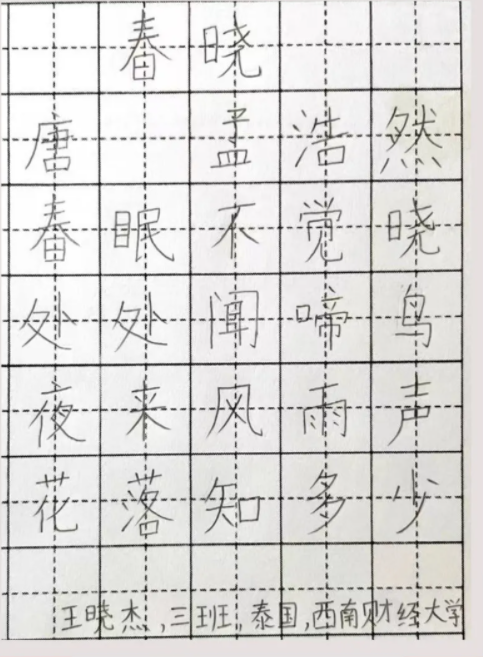 春晓
唐 孟浩然
春眠不觉晓
处处闻啼鸟
夜来风雨声
花落知多少
王晓杰,三班,泰国,西南财经大学